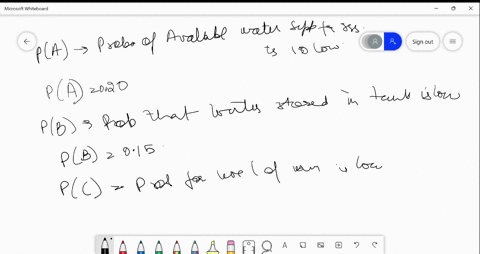 Microsoft Whiteboard
P(A) → Prob of Available water
is low.
Sign out
P(A) = 0.20
P(B) → Prob that water stored in tank is low
P(B) = 0.15.
P(C) = Prob for level of is low